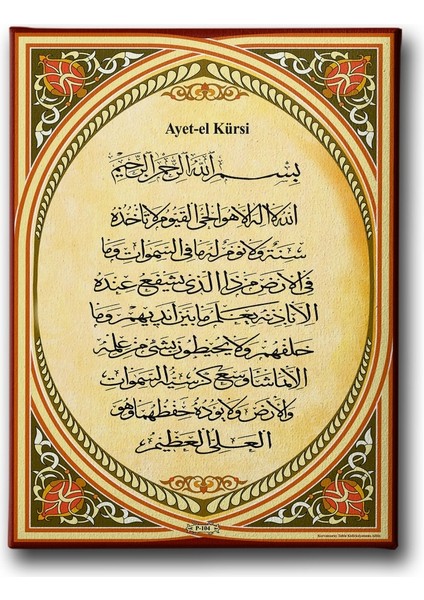 Ayet-el Kürsi
بسم الله الرحمن الرحيم
الله لا اله الا هو الحي القيوم لا تأخذه
سنة ولا نوم له ما في السموات وما
في الارض من ذا الذي يشفع عنده
الا باذنه يعلم ما بين ايديهم وما
خلفهم ولا يحيطون بشئ من علمه
الا بما شاء وسع كرسيه السموات
والارض ولا يؤده حفظهما وهو
العلي العظيم
P-104